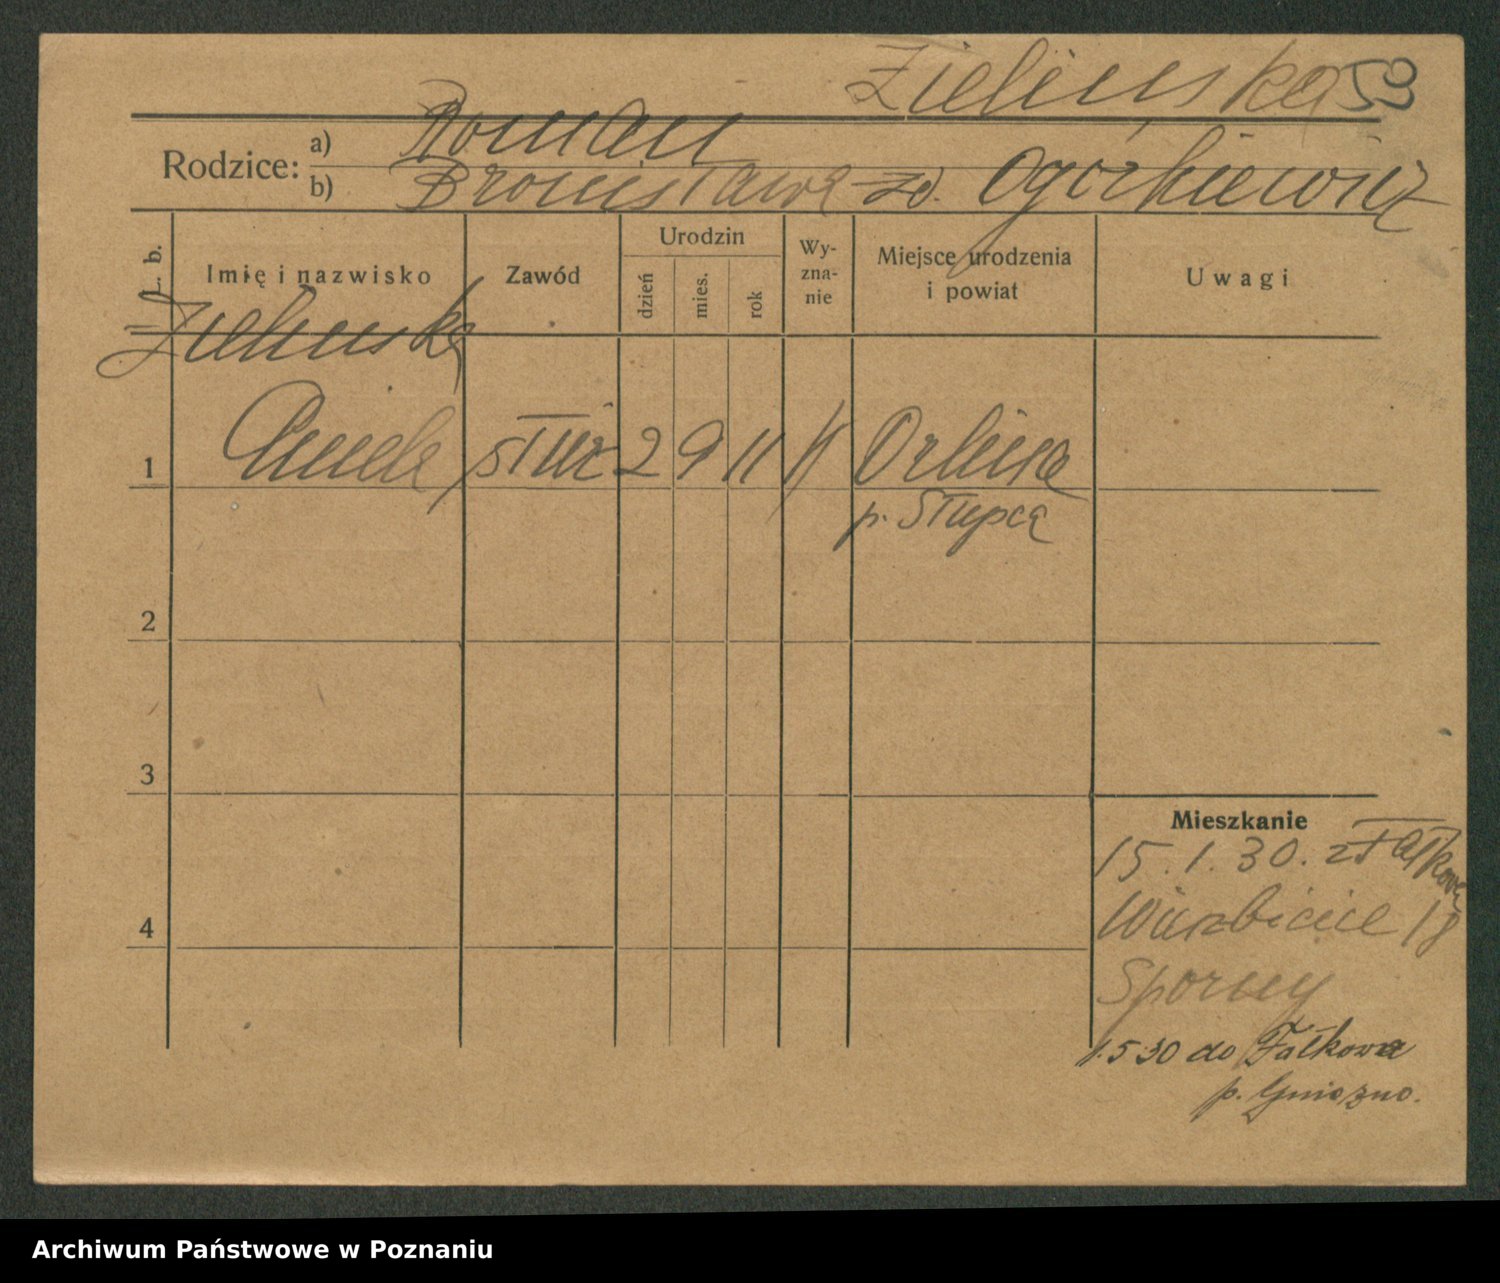 Zielinska 53
Rodzice:
a) Roman
b) Bronisława zd. Ogórkiewicz
L. b.
Imię i nazwisko
Zawód
Urodzin
dzień
mies.
rok
Wy-
zna-
nie
Miejsce urodzenia
i powiat
Uwagi
Zielinska
1 Aniela służ 2 9 11 k Orlina
p. Słupca
2
3
4
Mieszkanie
15. 1. 30. z Fałkowa
Wierzbicice 18
Sporny
1.5.30 do Fałkowa
p. Gniezno.
Archiwum Państwowe w Poznaniu